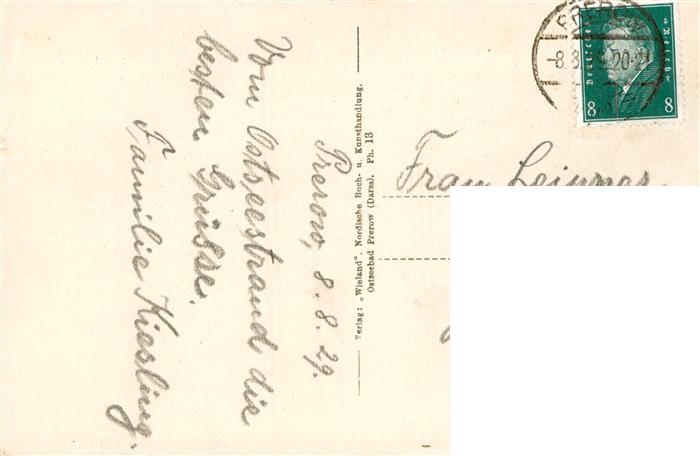 Prerow, 8.8.29.
Vom Ostseestrand die
besten Grüsse.
Familie Kiesling.
Verlag: „Wieland". Nordische Buch- u. Kunsthandlung.
Ostseebad Prerow (Darss). Ph. 13
PREROW
-8.8. 20-21
Deutsches Reich
8 8
Frau